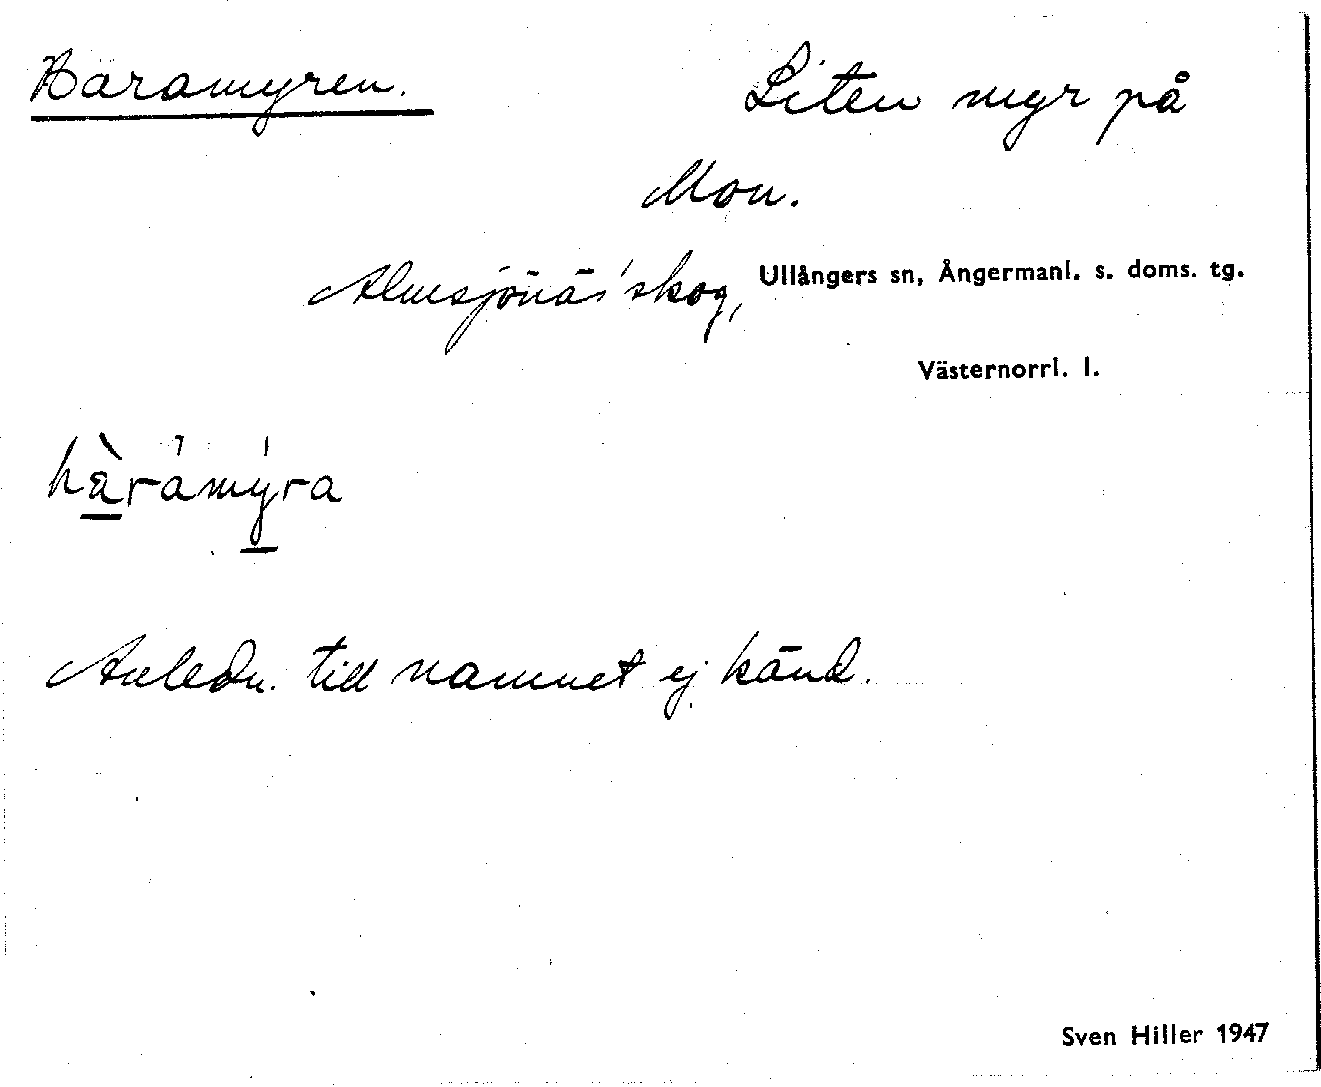 Häramyren.
Liten myr på
Mon.
Almsjönäs' skog, Ullångers sn, Ångermanl. s. doms. tg.
Västernorrl. l.
hàramýra
Anledn. till namnet ej känd.
Sven Hiller 1947